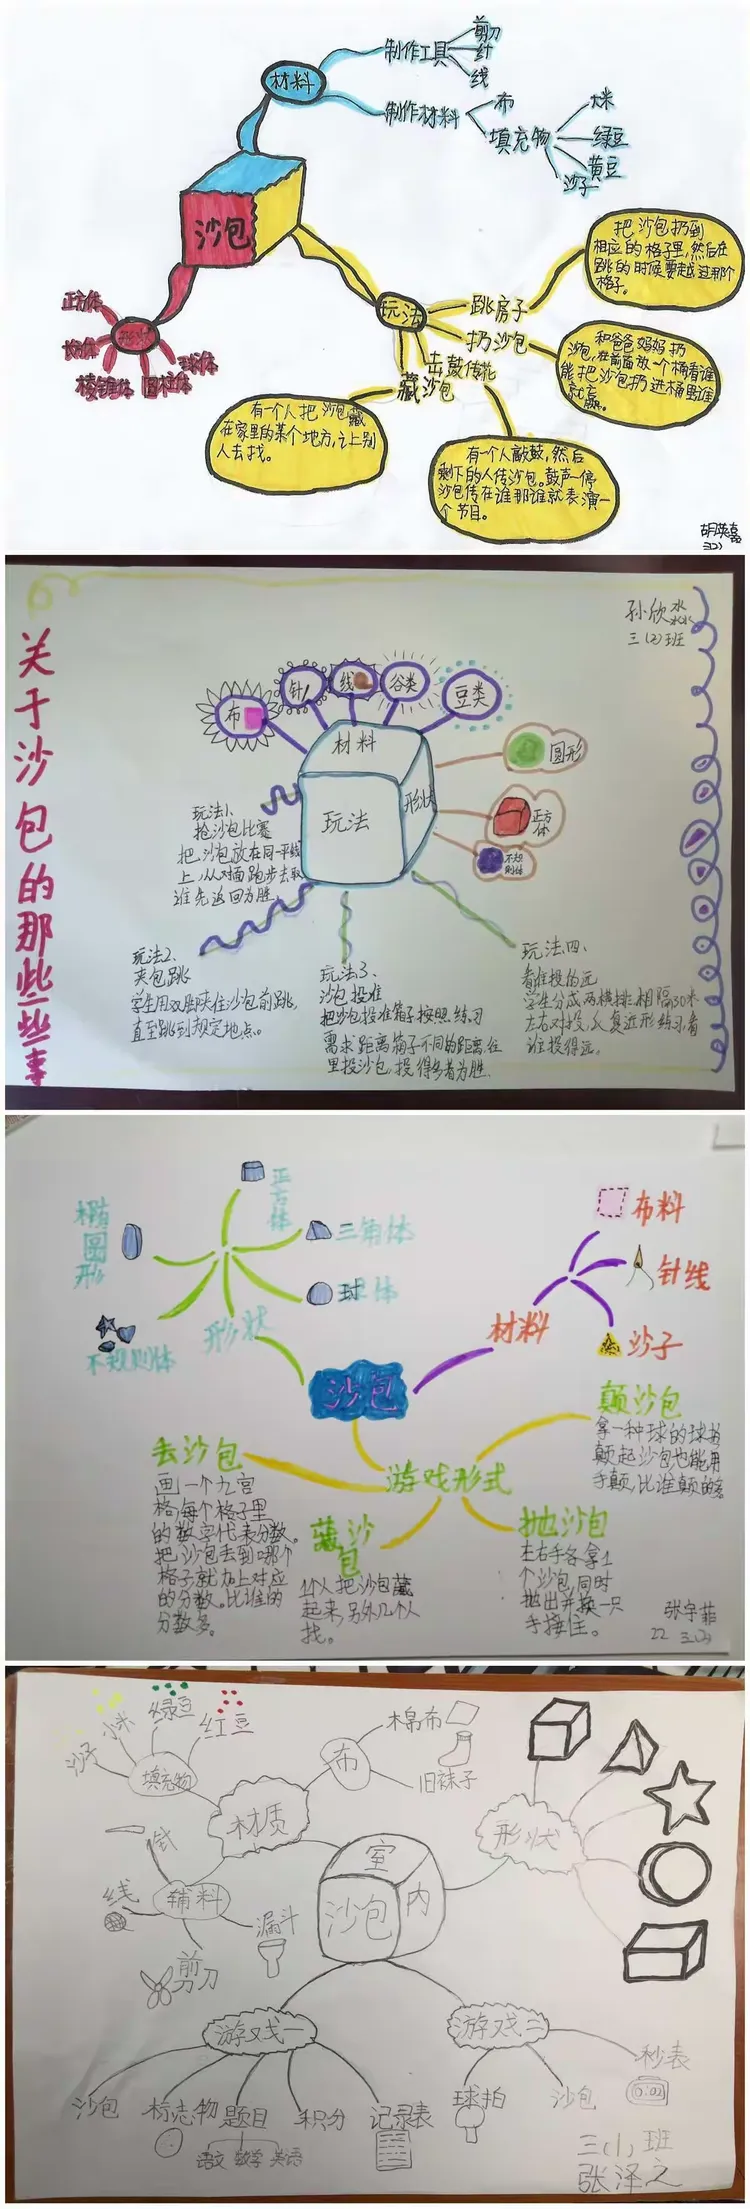 材料
制作工具
剪刀
针
线
制作材料
布
填充物
大米
绿豆
黄豆
沙子
沙包
正方体
长方体
棱锥体
圆柱体
球体
玩法
跳房子
把沙包扔到
相应的格子里,然后在
跳的时候要越过那个
格子。
扔沙包
和爸爸妈妈扔
沙包,在前面放一个桶看谁
能把沙包扔进桶里谁
就赢。
击鼓传花
有一个人敲鼓,然后
剩下的人传沙包。鼓声一停
沙包传在谁那谁就表演一
个节目。
藏沙包
有一个人把沙包藏
在家里的某个地方,让别
人去找。
胡英嘉
三(2)
关于沙包的那些些事
孙欣
三(2)班
布
针
线
谷类
豆类
材料
玩法
形状
圆形
正方体
不规则体
玩法1、
抢沙包比赛
把沙包放在同一平线
上,从对面跑步去取
谁先返回为胜
玩法2、
夹包跳
学生用双脚夹住沙包前跳,
直至跳到规定地点。
玩法3、
沙包投准
把沙包投准箱子按照练习
需求距离箱子不同的距离,往
里投沙包,投得多者为胜
玩法四、
看谁投的远
学生分成两横排,相隔30米
左右对投,反复近形练习,看
谁投得远。
正方体
椭圆形
三角体
球体
不规则体
形状
沙包
材料
布料
针线
沙子
游戏形式
丢沙包
画一个九宫
格,每个格子里
的数字代表分数。
把沙包丢到哪个
格子就加上对应
的分数。比谁的
分数多。
藏沙包
1个人把沙包藏
起来,另外几个人
找。
抛沙包
左右手各拿1
个沙包,同时
抛出并换一只
手接住。
颠沙包
拿一种球的球拍
颠起沙包也能用
手颠,比谁颠的多
张宇菲
22 三(2)
沙子
小米
绿豆
红豆
填充物
布
棉布
旧袜子
材质
针
线
辅料
漏斗
剪刀
室内
沙包
形状
游戏一
沙包
标志物
题目
语文 数学 英语
积分
记录表
游戏二
球拍
沙包
秒表
0:02
三(1)班
张泽之